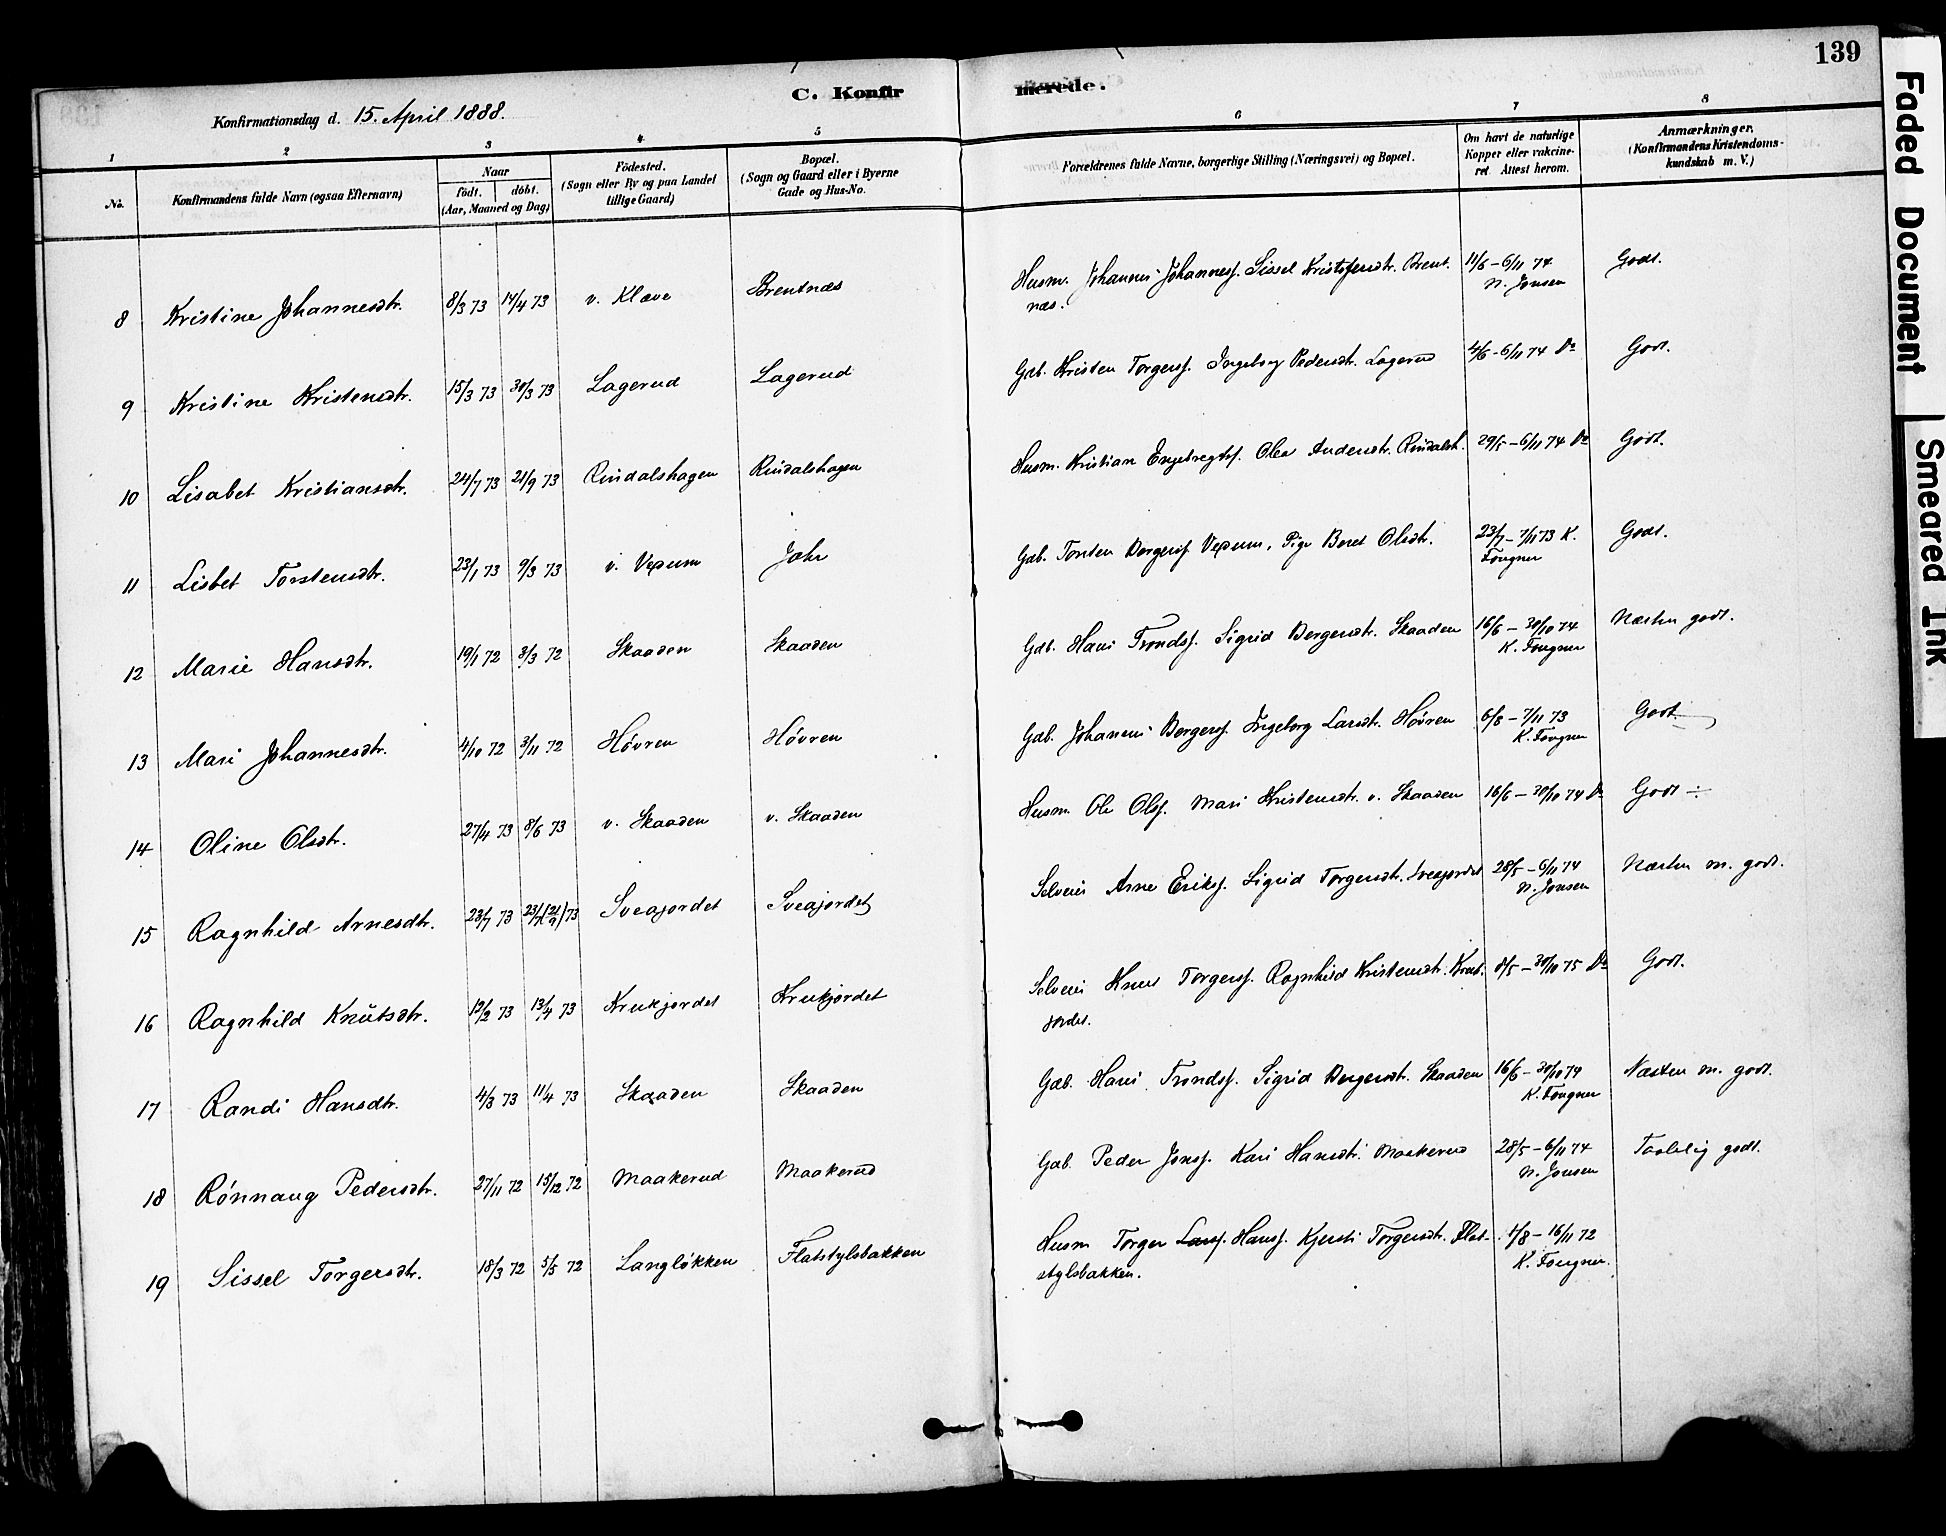 139
C. Konfirmerede.
Konfirmationsdag d. 15. April 1888.
1 2 3 4 5 6 7 8
No.
Konfirmandens fulde Navn (ogsaa Efternavn)
Naar
födt. döbt.
(Aar, Maaned og Dag)
Födested.
(Sogn eller By og paa Landet
tillige Gaard)
Bopæl.
(Sogn og Gaard eller i Byerne
Gade og Hus-No.
Forældrenes fulde Navne, borgerlige Stilling (Næringsvei) og Bopæl.
Om havt de naturlige
Kopper eller vakcine-
ret. Attest herom.
Anmærkninger.
(Konfirmandens Kristendoms-
kundskab m. V.)
8 Kristine Johannesdtr. 8/3 73 14/4 73 v. Klæve Brentnæs Husm. Johannes Johannesf. Sissel Kristofersdtr. Brent- 11/6 – 6/11 74 Godt.
næs. N. Jonsen
9 Kristine Kristensdtr. 15/3 73 30/3 73 Lagerud Lagerud Gdb. Kristen Torgersf. Ingeborg Pedersdtr. Lagerud 4/6 – 6/11 74 Do Godt.
10 Lisabet Kristiansdtr. 24/7 73 21/9 73 Rindalshagen Rindalshagen Husm. Kristian Engebregtsf. Olea Andersdtr. Rindalsh. 29/5 – 6/11 74 Do Godt.
11 Lisbet Torstensdtr. 23/1 73 9/3 73 v. Vexum Johr Gdb. Torsten Borgersf. Vexum, Pige Beret Olsdtr. 23/7 – 7/11 73 K. Godt.
Fougner
12 Marie Hansdtr. 19/1 72 3/3 72 Skaaden Skaaden Gdb. Hans Trondsf. Sigrid Borgersdtr. Skaaden 16/6 – 30/10 74 Næsten godt.
K. Fougner
13 Mari Johannesdtr. 4/10 72 3/11 72 Hövren Hövren Gdb. Johannes Borgersf. Ingeborg Larsdtr. Hövren 6/8 – 7/11 73 Godt.
K. Fougner
14 Oline Olsdtr. 27/4 73 8/6 73 v. Skaaden v. Skaaden Husm. Ole Olsf. Mari Kristensdtr. v. Skaaden 16/6 – 30/10 74 Do Godt ÷
15 Ragnhild Arnesdtr. 23/7 73 23/7(21/9)73 Sveajordet Sveajordet Selveier Arne Eriksf. Sigrid Torgersdtr. Sveajordet 28/5 – 6/11 74 Næsten m. godt.
N. Jonsen
16 Ragnhild Knutsdtr. 12/2 73 13/4 73 Krukjordet Krukjordet Selveier Knut Torgersf. Ragnhild Kristensdtr. Kruk- 8/5 – 30/10 75 Do Godt.
jordet.
17 Randi Hansdtr. 4/3 73 11/4 73 Skaaden Skaaden Gdb. Hans Trondsf. Sigrid Borgersdtr. Skaaden 16/6 – 30/10 74 Næsten m. godt.
K. Fougner
18 Rönnaug Pedersdtr. 27/11 72 15/12 72 Maakerud Maakerud Gdb. Peder Jonsf. Kari Hansdtr. Maakerud 28/5 – 6/11 74 Taalelig godt.
N. Jonsen
19 Sissel Torgersdtr. 18/3 72 5/5 72 Langlökken Flatstylsbakken Husm. Torger Larsf. Hansf. Kjersti Torgersdtr. Flat- 1/8 – 16/11 72
stylsbakken. K. Fougner.
Faded Document
Smeared Ink